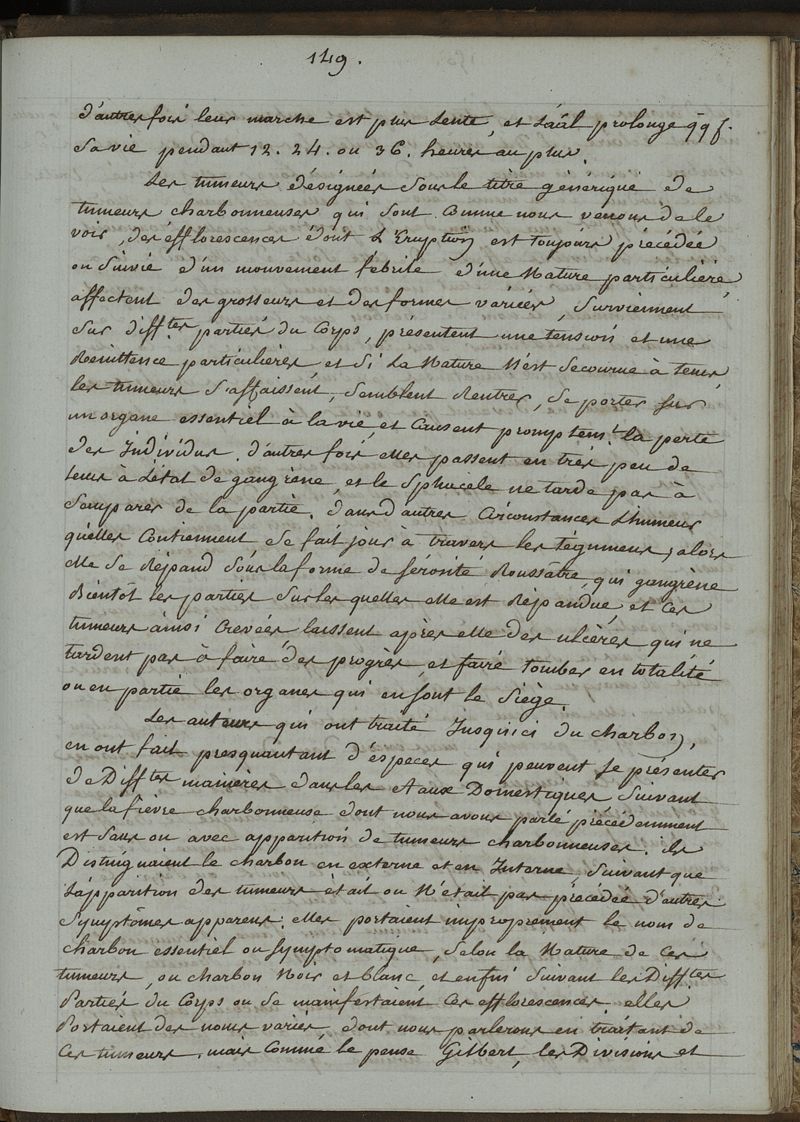 149.
d'autres fois leur marche est plus Lente, et L'aãl prolonge qq f.
Sa vie pendant 12. 24. ou 36. heures au plus.
Les tumeurs désignées Sous le titre générique de
tumeurs charbonneuses qui sont Comme nous venons de le
voir, des éfflorescences dont L'Eruption est toujours précédée
ou Suivie d'un mouvement fébrile d'une Nature particulière
affectent des grosseurs et des formes variées, Surviennent
Sur diff.tes parties du Corps, présentent une tension et une
Rénittence particulières, et Si La Nature N'est Secourue à tems,
les tumeurs S'affaissent, Semblent Rentrer, Se porter sur
un organe essentiel à la vie, et Causent promptem.t la perte
des Individus. d'autres fois elles passent en très peu de
tems à L'état de gangrène, et le Sphacele ne tarde pas à
S'emparer de la partie. dans d'autres Circonstances L'humeur
qu'elles Contiennent Se fait jour à travers les tégumens, alors
elle Se Répand Sous la forme de Sérosité Roussâtre, qui gangrène
Bientôt les parties Sur les quelles elle est Répandue, et Ces
tumeurs ainsi Crevées laissent après elle des ulcères qui ne
tardent pas à faire des progrès, et faire tomber en totalité
ou en partie les organes qui en font le Siège.
Les auteurs qui ont traité Jusqu'ici du charbon,
en ont fait presqu'autant d'éspeces qu'i peuvent se présenter
de Diff.tes manières dans les Aaux Domestiques Suivant
que la fièvre charbonneuse dont nous avons parlé précédemment
est Sans ou avec apparition de tumeurs charbonneuses. ils
Distinguaient le charbon en externe et en Interne, Suivant que
L'apparition des tumeurs était ou N'était pas précédée d'autres
Symptômes apparens. elles portaient improprement le nom de
charbon essentiel ou Symptomatique, Selon la Nature de Ces
tumeurs, ou charbon Noir et blanc, et enfin Suivant les Diff.tes
Parties du Corps ou Se manifestaient Ces efflorescences. elles
Portaient des noms variés, dont nous parlerons en traitant de
Ces tumeurs. mais Comme le pense Gilbert, les Divisions et